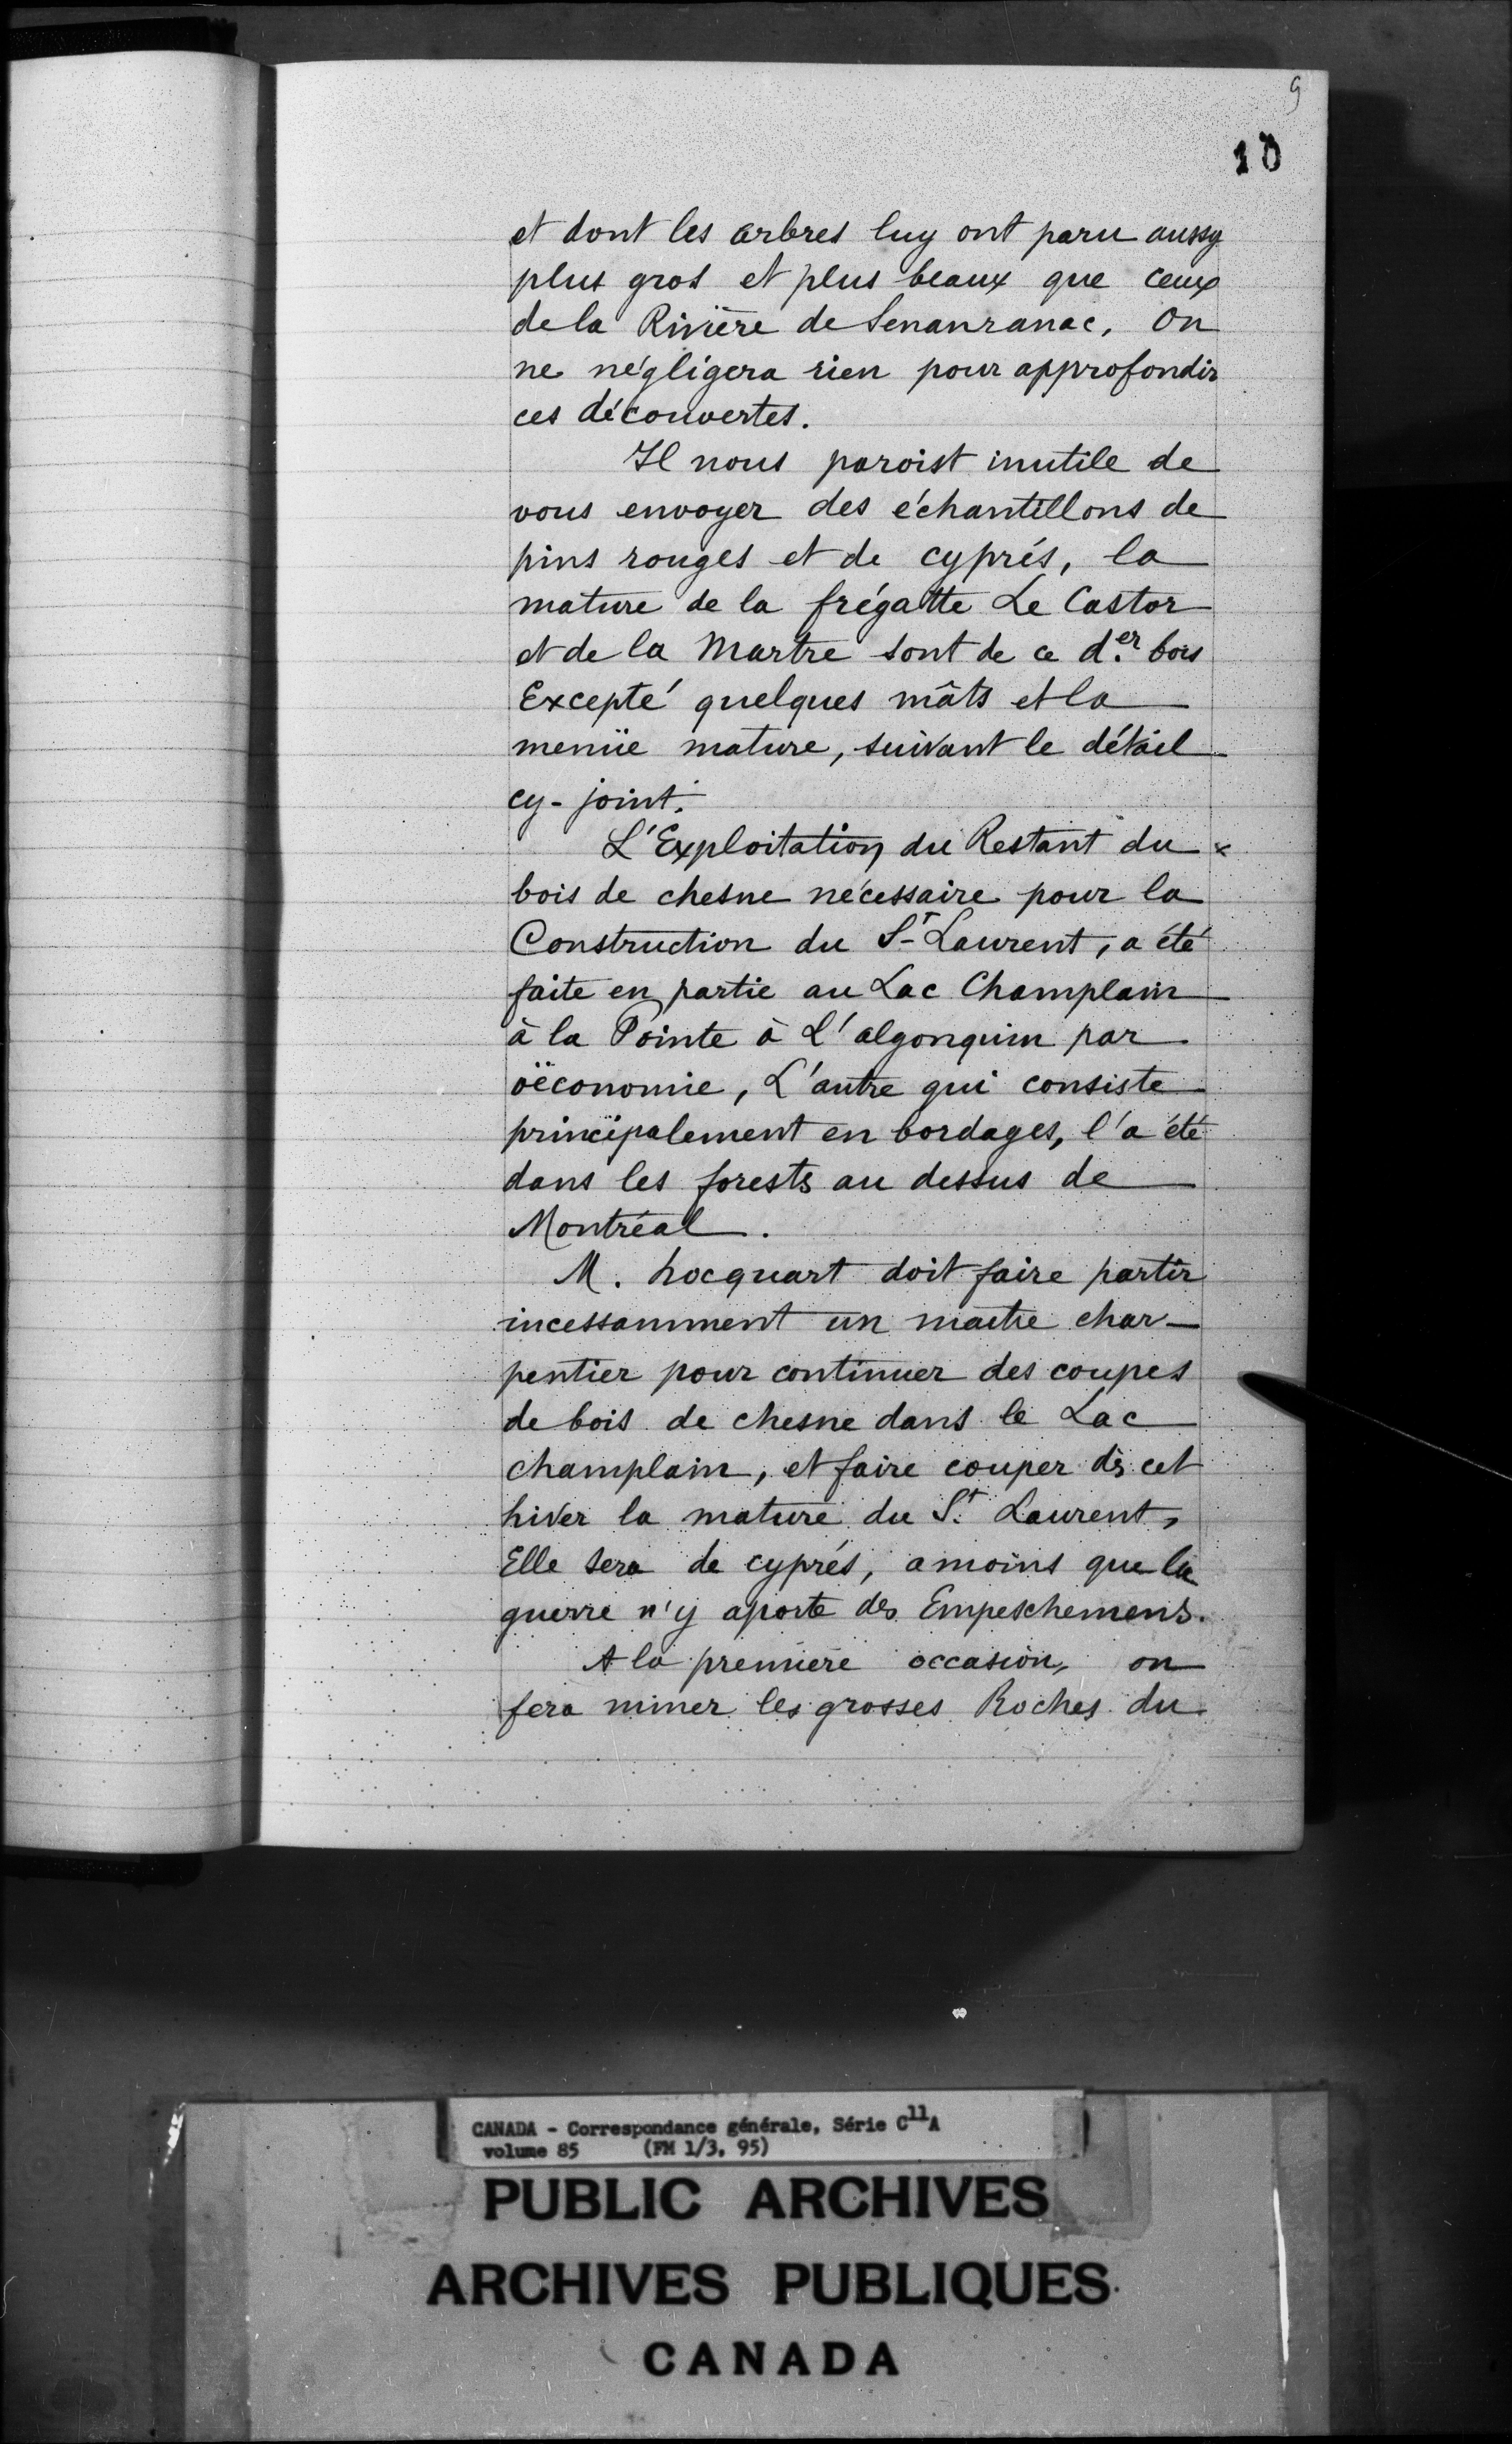 9
10
et dont les arbres luy ont paru aussy
plus gros et plus beaux que ceux
de la Rivière de Senanranac, On
ne négligera rien pour approfondir
ces découvertes.
Il nous paroist inutile de
vous envoyer des échantillons de
pins rouges et de cyprés, la
mature de la frégatte Le Castor
et de la Martre sont de ce d.er bois
Excepté quelques mâts et la
menüe mature, suivant le détail
cy-joint.
L'Exploitation du Restant du x
bois de chesne nécessaire pour la
Construction du St Laurent, a été
faite en partie au Lac Champlain
à la Pointe à L'algonquin par
oëconomie, L'autre qui consiste
principalement en bordages, l'a été
dans les forests au dessus de
Montréal.
M. hocquart doit faire partir
incessamment un maitre char-
pentier pour continuer des coupes
de bois de chesne dans le Lac
champlain, et faire couper dès cet
hiver la mature du St. Laurent,
Elle sera de cyprés, amoins que la
guerre n'y aporte des Empeschemens.
A la première occasion, on
fera miner les grosses Roches du
CANADA - Correspondance générale, Série C11A
volume 85 (FM 1/3, 95)
PUBLIC ARCHIVES
ARCHIVES PUBLIQUES
CANADA